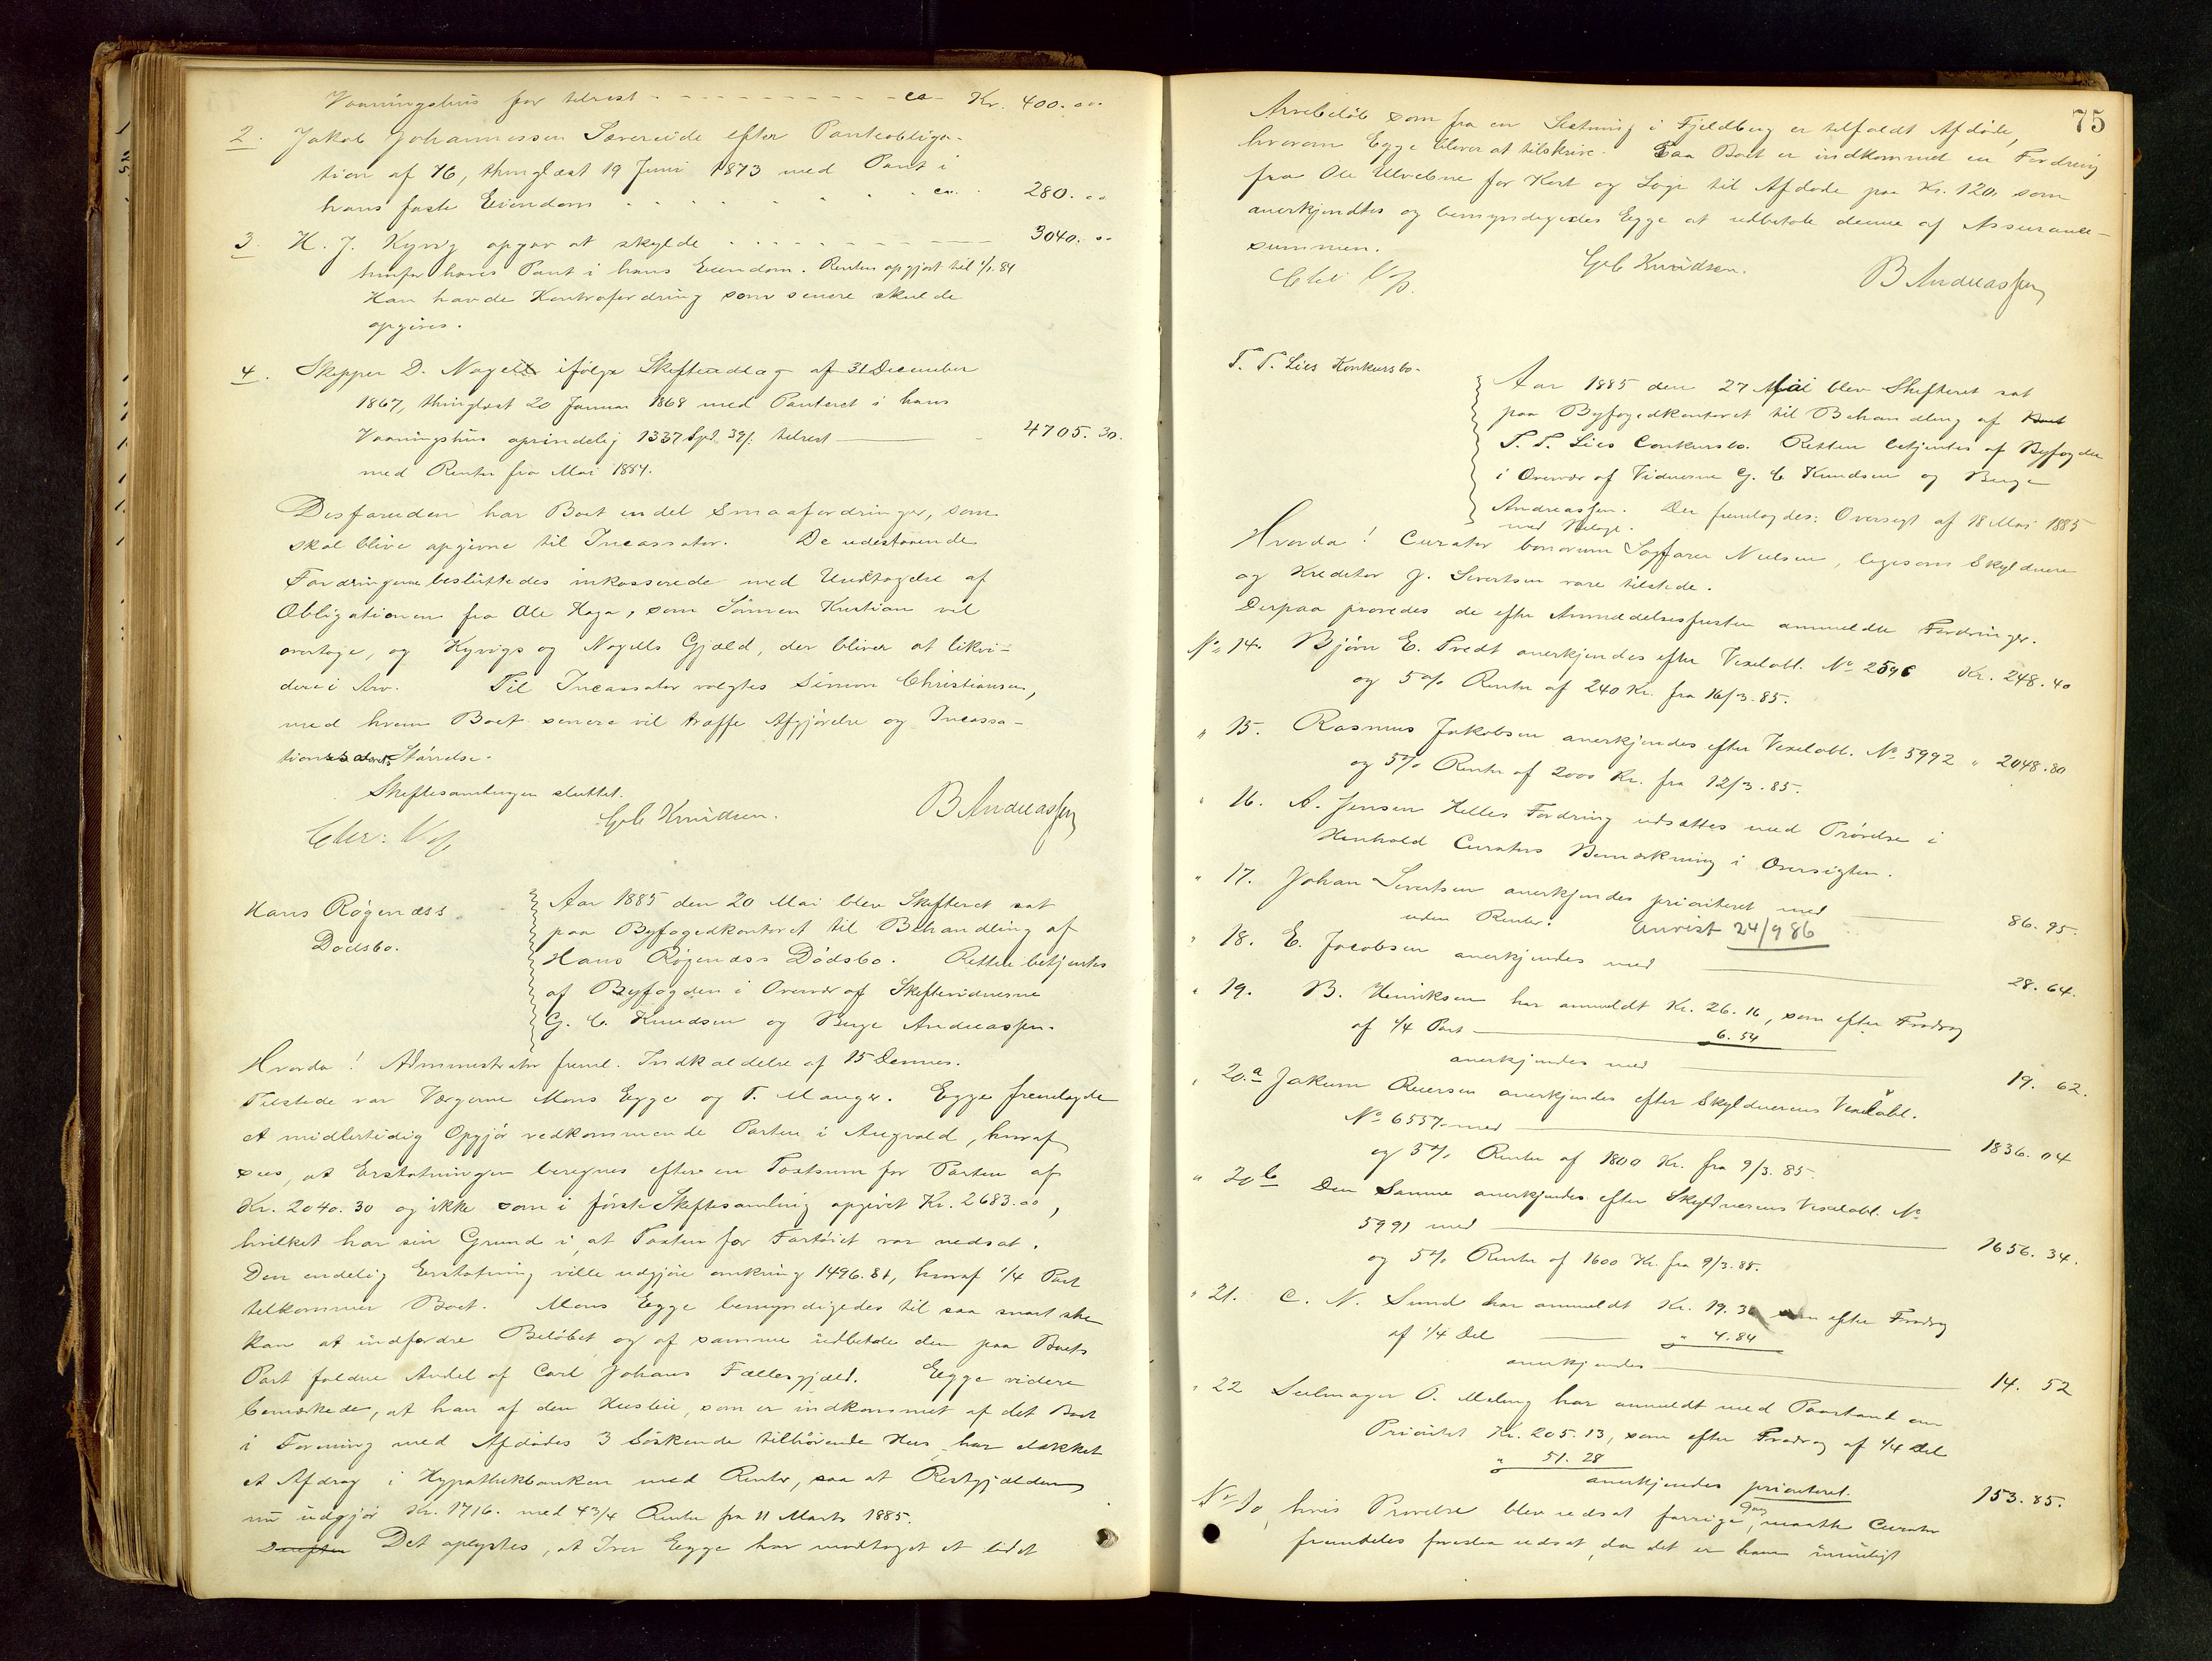 Vaaningshus for tilrest - - - - - - - - - - ca Kr. 400.00
2. Jakob Johannessen Sævereide efter Panteobliga-
tion af 16, thinglæst 19 Juni 1873 med Pant i
hans faste Eiendom . . . . . . . ca. 280.00
3. H. J. Kyvig opgav at skylde . . . . . . 3040.00
hvorfor haves Pant i hans Eiendom. Renten opgjort til 1/1.84
Han havde Kontrafordring som senere skulde
opgives.
4. Skipper D. Nagell ifølge Skifteudlæg af 31 December
1867, thinglæst 20 Januar 1868 med Panteret i hans
Vaaningshus oprindelig 1337 Spd. 39 s. tilrest 4705.30.
med Renter fra Mai 1884.
Desforuden har Boet endel Smaafordringer, som
skal blive opgivne til Incassator. De udestaaende
Fordringer besluttedes inkasserede med Undtagelse af
Obligationen fra Ole Haga, som Sønnen Kristian vil
overtage, og Kyvigs og Nagells Gjæld, der bliver at likvi-
dere i Arv. Til Incassator valgtes Simon Christiansen,
med hvem Boet senere vil træffe Afgjørelse og Incassa-
tions Størrelse.
Skiftesamlingen sluttet.
G C Knudsen. B Andreassen
Hans Røgenæss
Dødsbo.
Aar 1885 den 20 Mai blev Skifteret sat
paa Byfogedkontoret til Behandling af
Hans Røgenæss Dødsbo. Retten betjentes
af Byfogden i Overvær af Skiftevidnerne
G. C. Knudsen og Berge Andreassen.
Hvorda! Administrator freml. Indkaldelse af 15 Dennes.
Tilstede var Værgerne Mons Egge og T. Mauger. Egge fremlagde
et midlertidig Opgjør vedkommende Parten i Augvald, hvoraf
sees, at Erstatningen beregnes efter en Taxtsum for Parten af
Kr. 2040.30 og ikke som i første Skiftesamling opgivet Kr. 2683.00,
hvilket har sin Grund i, at Taxten for Fartøiet var nedsat.
Den endelig Erstatning ville udgjøre omkring 1496.81, hvoraf 1/4 Part
tilkommer Boet. Mons Egge bemyndigedes til saa snart ske
kan at indfordre Beløbet og af samme udbetale den paa Boets
Part faldne Andel af Carl Johans Fællesgjæld. Egge videre
bemærkede, at han af den Husleie, som er indkommet af det Boet
i Forening med Afdødes 3 Søskende tilhørende Hus har dækket
et Afdrag i Hypothekbanken med Renter, saa at Restgjælden
nu udgjør Kr. 1716. med 4 3/4 Rente fra 11 Marts 1885.
Det oplystes, at Iver Egge har modtaget et lidet
75
Arvebeløb som fra en Slutning i Fjeldberg er tilfaldt Afdøde,
hvorom Egge bliver at tilskrive. Paa Boet er indkommet en Fordring
fra Ole Ulvebne for Kost og Logi til Afdøde paa Kr. 120, som
anerkjendtes og bemyndigedes Egge at udbetale denne af Assurance-
summen.
G C Knudsen. B Andreassen
T. T. Lies Konkursbo.
Aar 1885 den 27 Mai blev Skifteret sat
paa Byfogedkontoret til Behandling af Boet
T. T. Lies Conkursbo. Retten betjentes af Byfogden
i Overvær af Vidnerne G. C. Knudsen og Berge
Andreassen. Der fremlagdes: Oversigt af 18 Mai 1885
med Bilage.
Hvorda! Curator bonorum Sagfører Nielsen, ligesom Skyldnere
og Kreditor J. Sivertsen vare tilstede.
Derpaa prøvedes de efter Anmeldelsesfristen anmeldte Fordringer.
No 14. Bjørn E. Tvedt anerkjendes efter Vexelobl. No 2596 Kr. 248.40
og 5% Renter af 240 Kr. fra 16/3.85.
" 15. Rasmus Jakobsen anerkjendes efter Vexelobl. No 5992 " 2048.80
og 5% Renter af 2000 Kr. fra 12/3.85.
" 16. A. Jensen Helles Fordring udsættes med Prøvelse i
Henhold Curators Bemærkning i Oversigten.
" 17. Johan Sivertsen anerkjendes prioriteret med 86.95.
uden Renter. Anvist 24/9 86
" 18. E. Jacobsen anerkjendes med 28.64.
" 19. B. Henriksen har anmeldt Kr. 26.16, som efter Fradrag
af 1/4 Part 6.54
anerkjendes med 19.62.
" 20.a Jakum Reiersen anerkjendes efter Skyldnerens Vexelobl.
No 6557 med 1836.04
og 5% Renter af 1800 Kr. fra 9/3.85.
" 20 b Den Samme anerkjendes efter Skyldnerens Vexelobl. No
5991 med 1656.34.
og 5% Renter af 1600 Kr. fra 9/3.85.
" 21. C. N. Sund har anmeldt Kr. 19.36 som efter Fradrag
af 1/4 Del " 4.84
anerkjendes 14.52
" 22 Seilmager O. Meling har anmeldt med Paastand om
Prioritet Kr. 205.13, som efter Fradrag af 1/4 Del
" 51.28
anerkjendes prioriteret. 153.85.
No 10, hvis Prøvelse blev udsat forrige Gang, maatte Curator
fremdeles foreslaa udsat, da det er ham umuligt